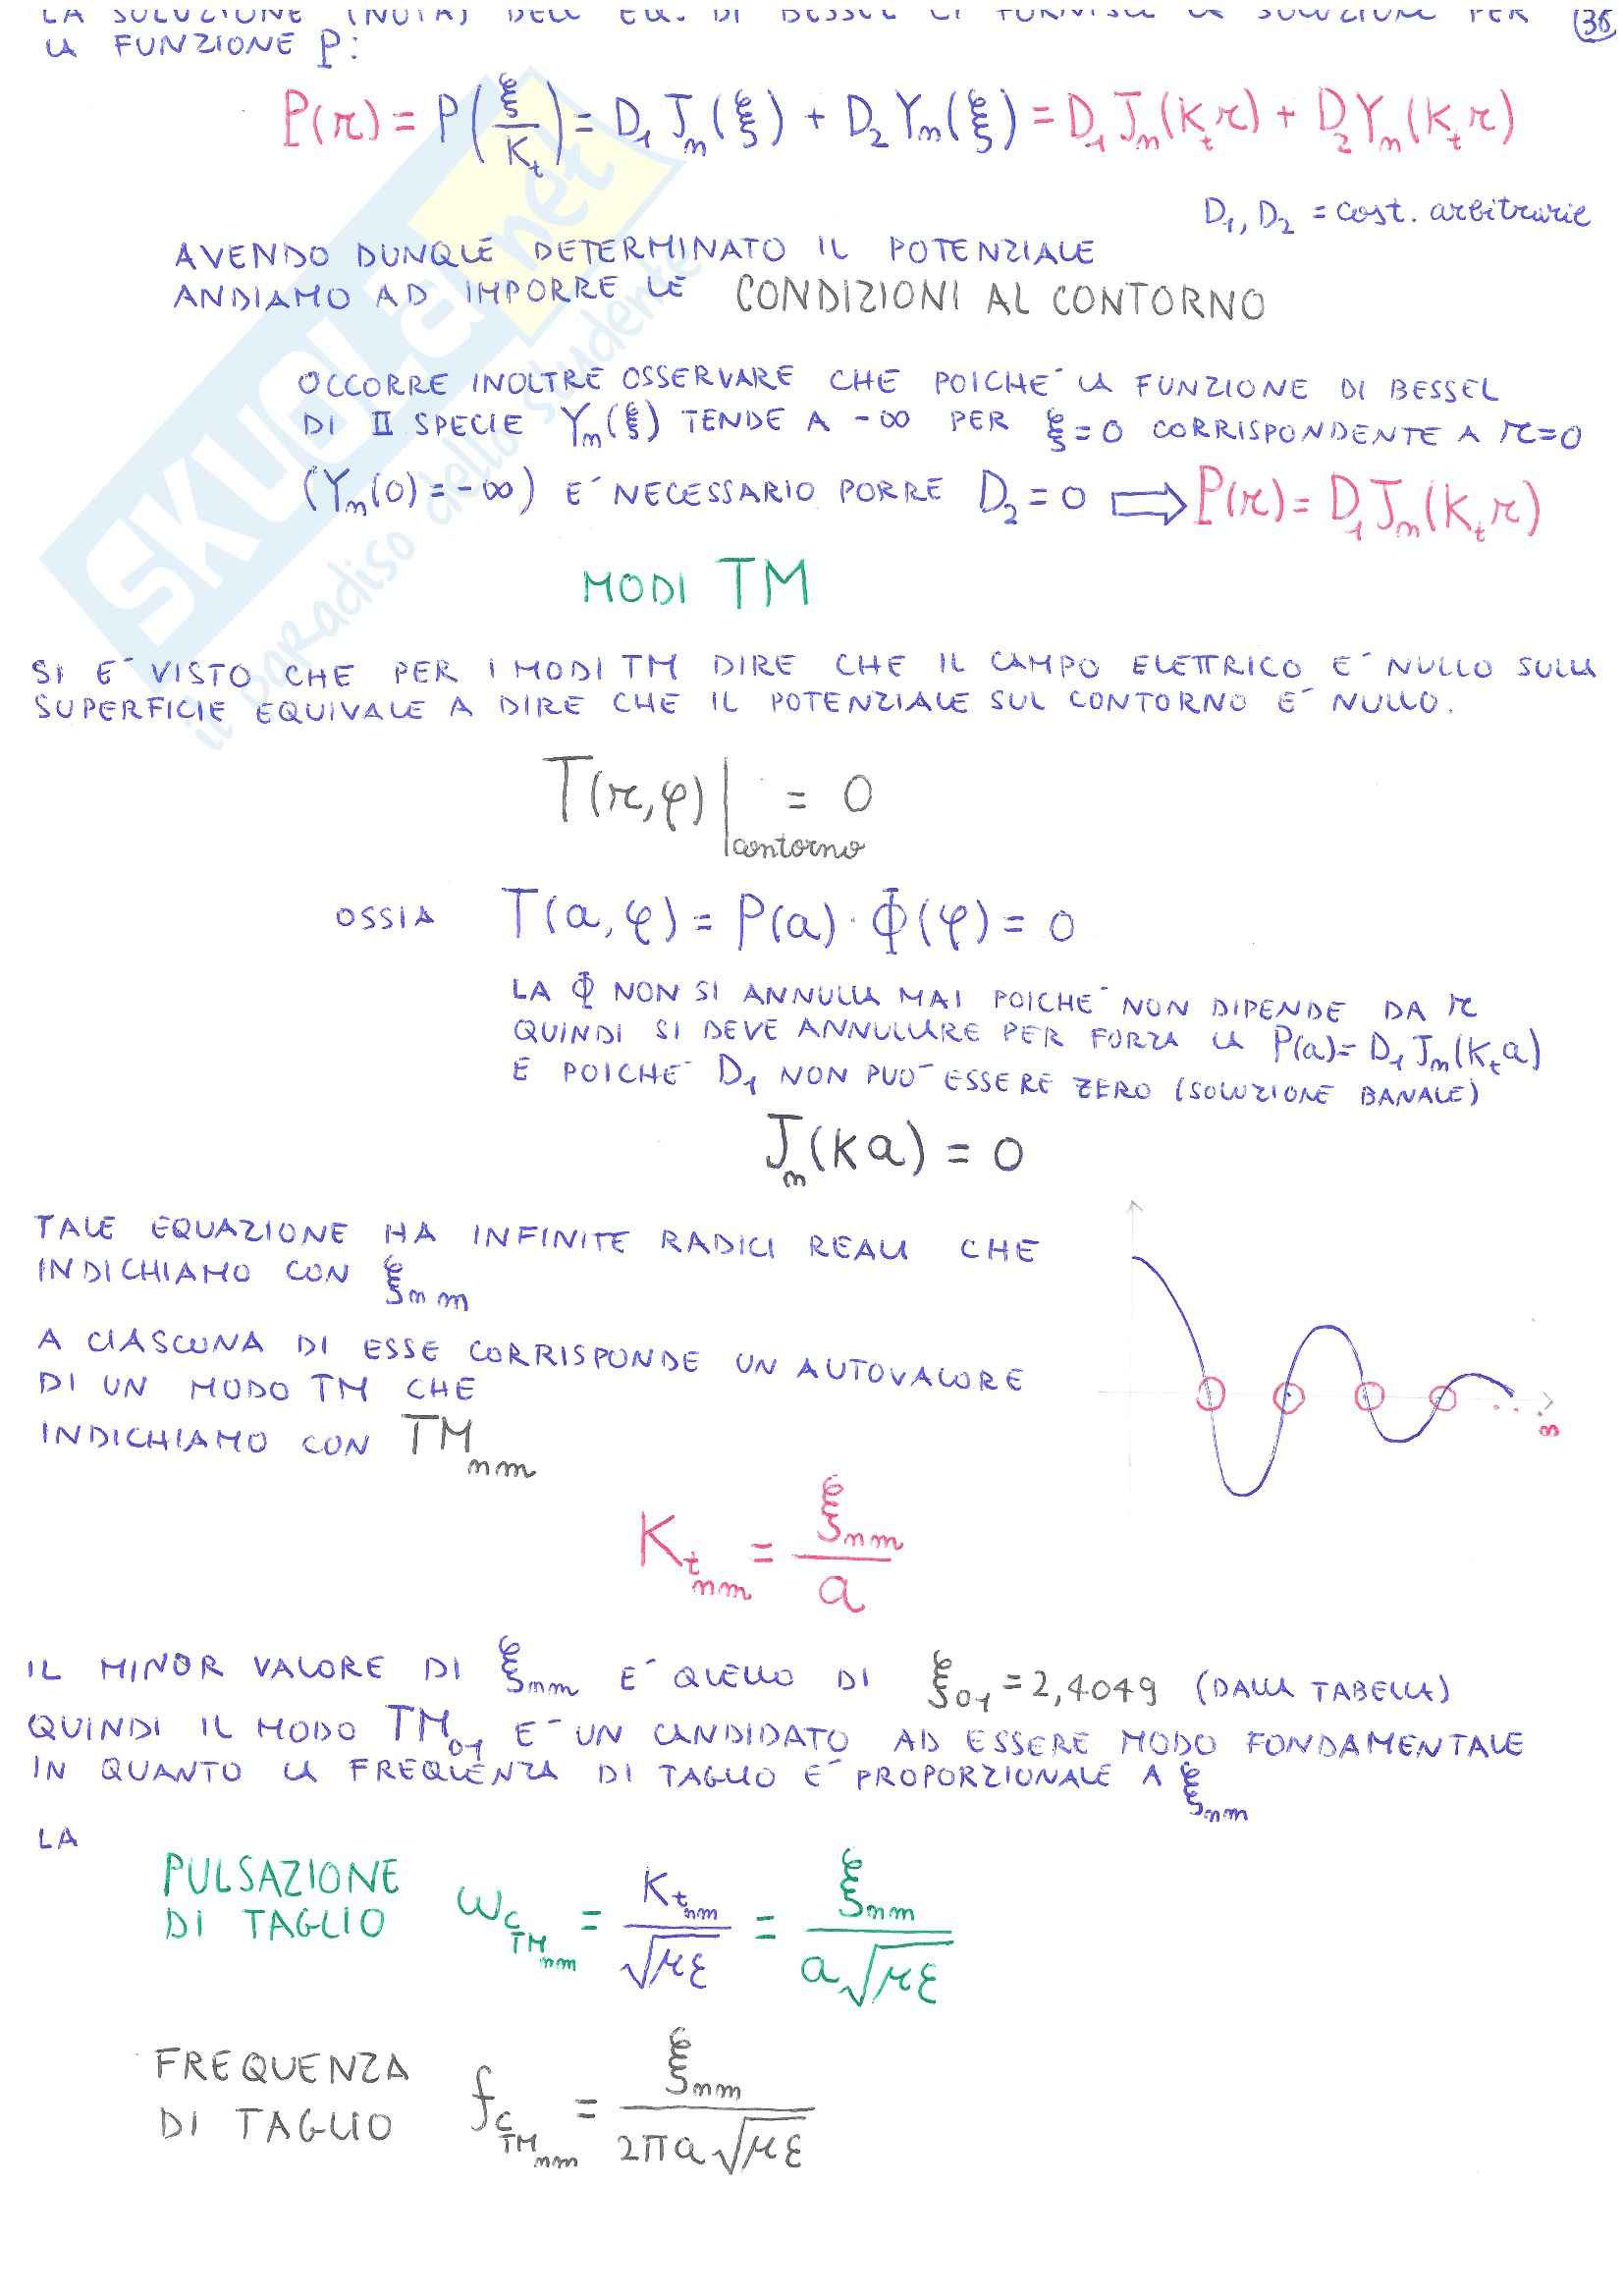 LA SOLUZIONE (NOTA) DELL' EQ. DI BESSEL CI FORNISCE LA SOLUZIONE PER
LA FUNZIONE P:
36
P(r) = P(ξ/K_t) = D₁ J_n(ξ) + D₂ Y_n(ξ) = D₁ J_n(K_t r) + D₂ Y_n(K_t r)
D₁, D₂ = cost. arbitrarie
AVENDO DUNQUE DETERMINATO IL POTENZIALE
ANDIAMO AD IMPORRE LE CONDIZIONI AL CONTORNO
OCCORRE INOLTRE OSSERVARE CHE POICHE' LA FUNZIONE DI BESSEL
DI II SPECIE Y_n(ξ) TENDE A -∞ PER ξ=0 CORRISPONDENTE A r=0
(Y_n(0) = -∞) E' NECESSARIO PORRE D₂ = 0 ⇒ P(r) = D₁ J_n(K_t r)
MODI TM
SI E' VISTO CHE PER I MODI TM DIRE CHE IL CAMPO ELETTRICO E' NULLO SULLA
SUPERFICIE EQUIVALE A DIRE CHE IL POTENZIALE SUL CONTORNO E' NULLO.
T(r,φ)|contorno = 0
OSSIA T(a,φ) = P(a) · Φ(φ) = 0
LA Φ NON SI ANNULLA MAI POICHE' NON DIPENDE DA r
QUINDI SI DEVE ANNULLARE PER FORZA LA P(a) = D₁ J_n(K_t a)
E POICHE' D₁ NON PUO' ESSERE ZERO (SOLUZIONE BANALE)
J_n(Ka) = 0
TALE EQUAZIONE HA INFINITE RADICI REALI CHE
INDICHIAMO CON ξ_nm
A CIASCUNA DI ESSE CORRISPONDE UN AUTOVALORE
DI UN MODO TM CHE
INDICHIAMO CON TM_nm
n
K_t_nm = ξ_nm / a
IL MINOR VALORE DI ξ_nm E' QUELLO DI ξ₀₁ = 2,4049 (DALLA TABELLA)
QUINDI IL MODO TM₀₁ E' UN CANDIDATO AD ESSERE MODO FONDAMENTALE
IN QUANTO LA FREQUENZA DI TAGLIO E' PROPORZIONALE A ξ_nm
LA
PULSAZIONE DI TAGLIO ω_c_TM_nm = K_t_nm / √με = ξ_nm / a√με
FREQUENZA DI TAGLIO f_c_TM_nm = ξ_nm / 2πa√με
SKUOLA.net
il paradiso dello studente